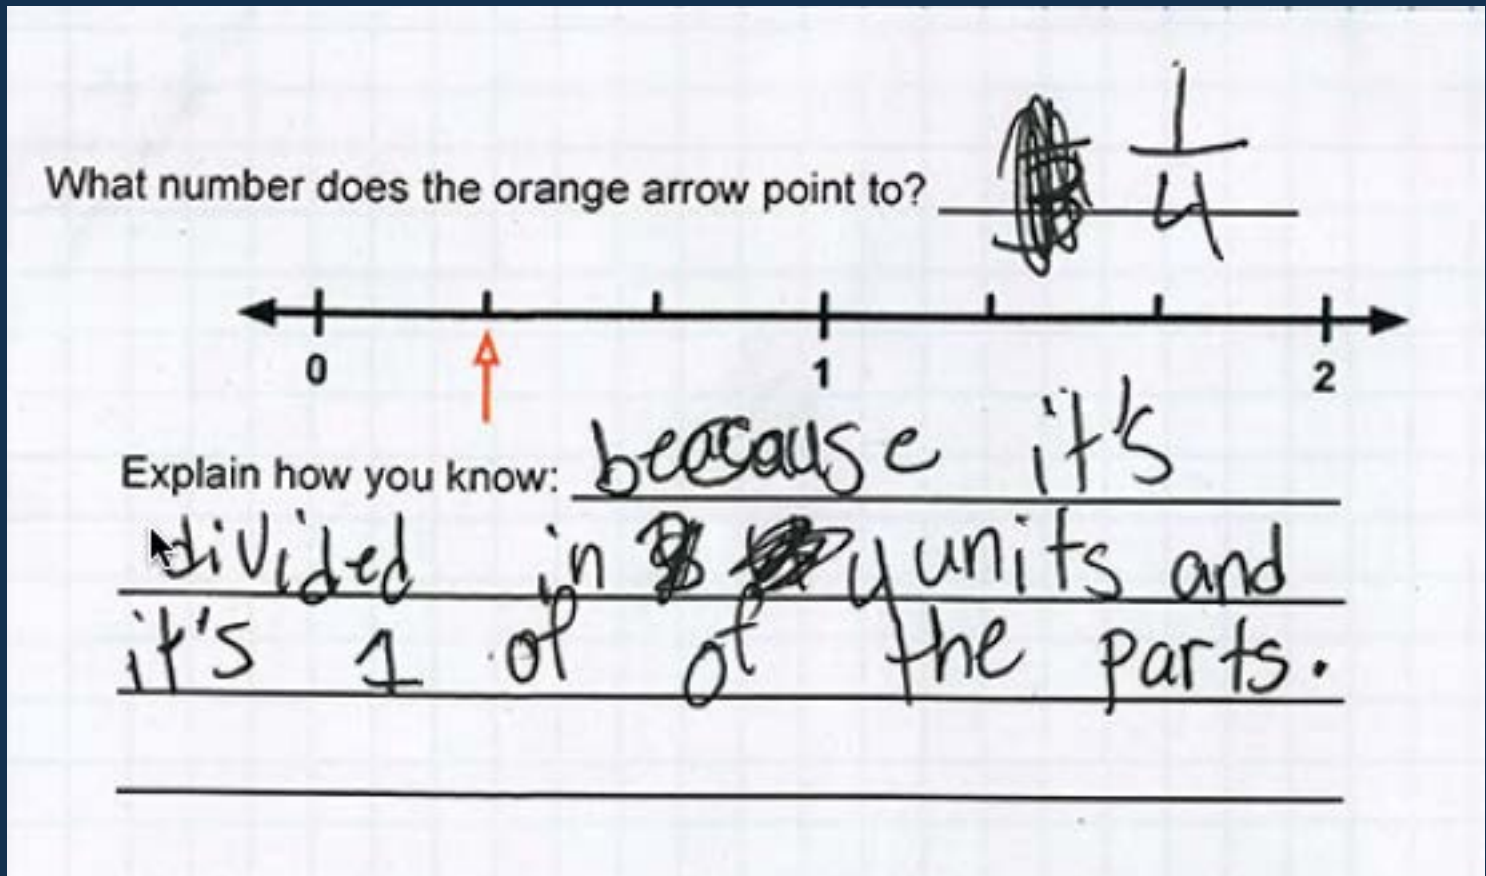 What number does the orange arrow point to? 1/4
0 1 2
Explain how you know: beacause it's
divided in 4 units and
it's 1 of of the parts.